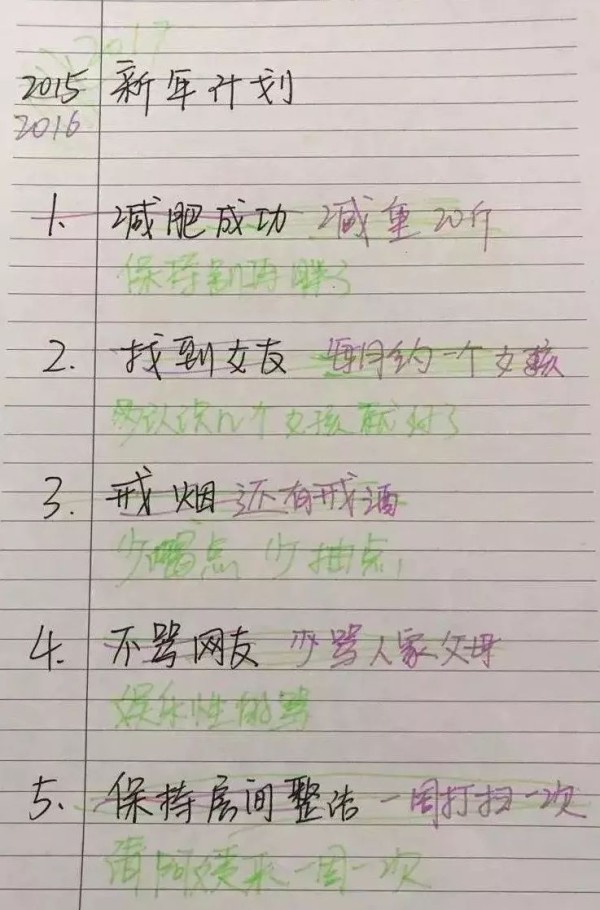 2017
2015 新年计划
2016
1. 减肥成功 减重20斤
保持别再胖了
2. 找到女友 每月约一个女孩
多认识几个女孩就好了
3. 戒烟 还有戒酒
少喝点 少抽点,
4. 不骂网友 少骂人家父母
娱乐性的骂
5. 保持房间整洁 一周打扫一次
请阿姨来一周一次